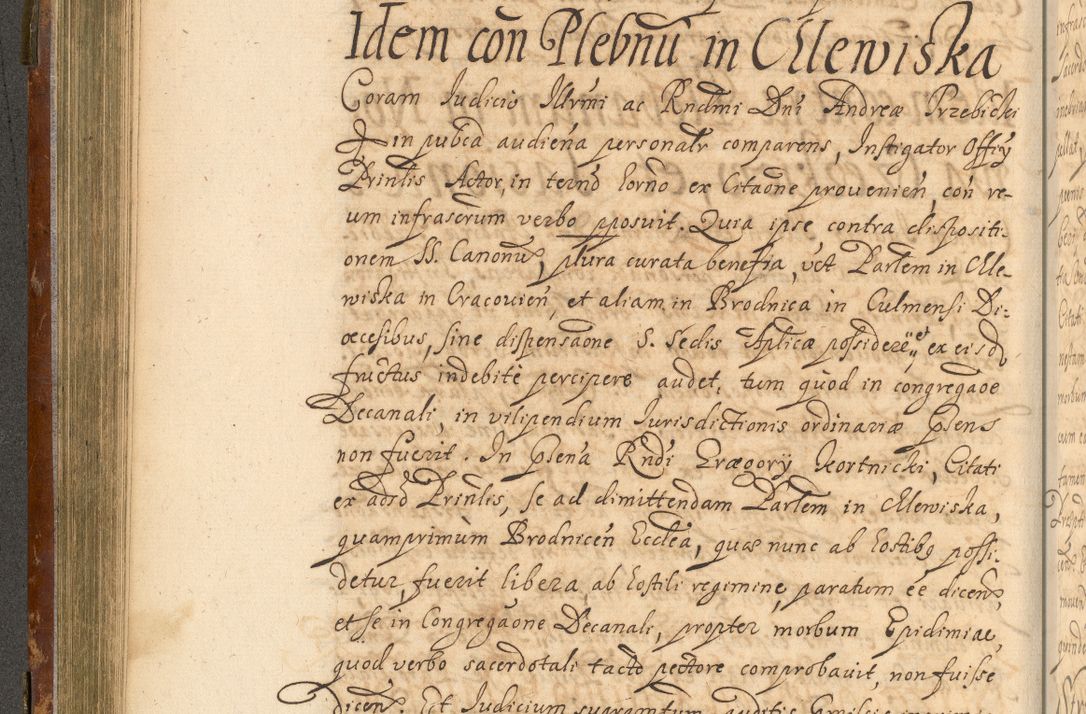 Idem con Plebnũ in Mlewiska
Coram Iudicio Illrmi ac Rndmi Dni Andreæ Przebicki
in pubca audiena personalr comparens, Instigator Offÿ
Prinlis Actor, in termo horno ex Citaone prouenien, con re-
um infrascrum verbo pposuit. Quia ipse contra dispositi-
onem SS. Canonũ, plura curata beneffia, vet Parlem in Mle-
wiska in Cracouien, et aliam in Brodnica in Culmensi Di-
œcesibus, sine dispensaone S. Sedis Aplicæ possidere et ex eisd
fructus indebitè percipere audet, tum quod in congregaoe
Decanali, in vilipendium Iurisdictionis ordinariæ psens
non fuerit. In psena Rndi Grægorÿ Kortnicki, Citati
ex adsо Prinlis, se ad dimittendam Parlem in Mlewiska,
quamprimùm Brodnicen Ecclea, quæ nunc ab hostibꝫ possi-
detur, fuerit libera, ab hostili regimine, paratum ee dicen,
et se in Congregaone Decanali, propter morbum Epidimiae,
quod verbo sacerdotali tacto pectore comprobauit, non fuisse
dicen. Et Iudicium iuramentum auditis